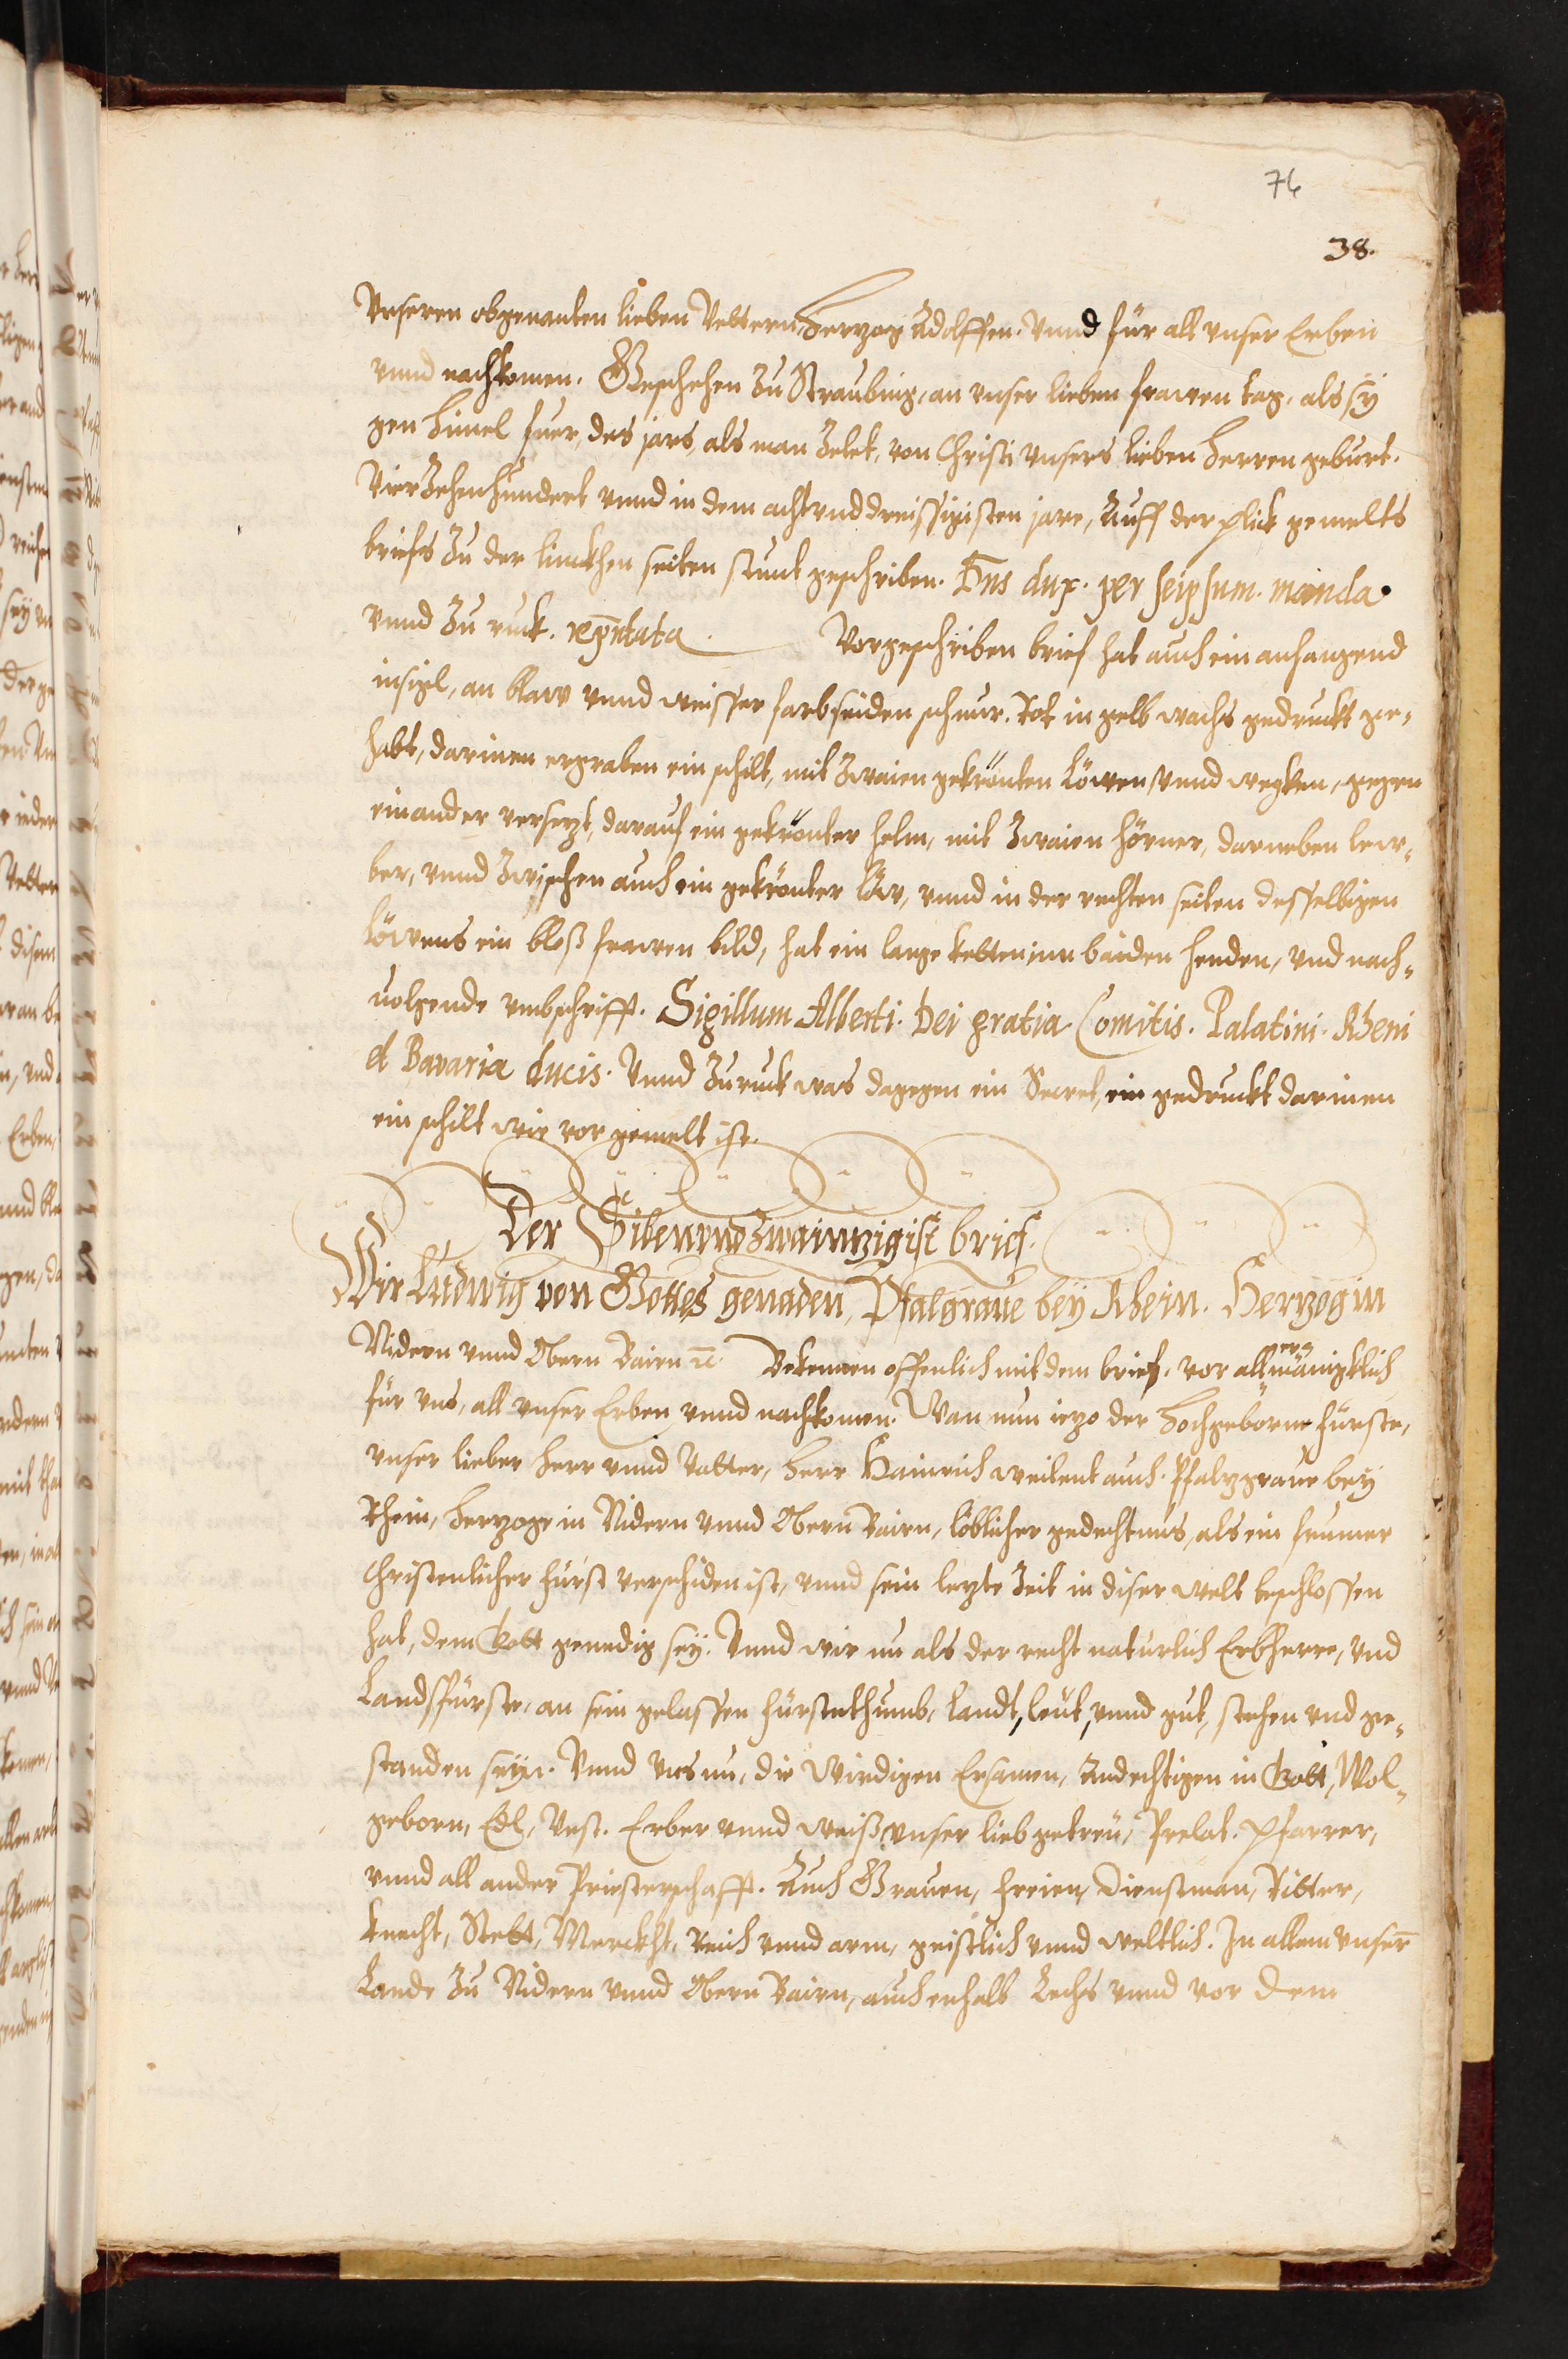 76
38.
Unseren obgenanten lieben Vettern Herzog Adolffen. Unnd für all unser Erben
unnd nachkomen. Geschehen zu Straubing, an unser lieben frawen tag, als sÿ
gen himel fuer, des jars, als man zelet, von Christi unsers lieben Herren geburt.
Vierzehenhundert unnd in dem achtunddreissigisten jare, Auff der plick gemelts
briefs zu der linckhen seiten stunt geschriben. Dns dux. per seipsum. manda
unnd zu ruck. rep̄ntata. Vorgeschriben brief hat auch ein anhangend
insigl, an blaw unnd weisser farb seiden schnur. Rot in gelb wachs gedruckt ge-
habt, darinen ergraben ein schilt, mit zwaien gekrönten Löwen, unnd wegken, gegen
einander versezt, darauf ein gekrönter helm, mit zwaien hörner, darneben lew-
ber, unnd zwischen auch ein gekrönter Löw, unnd in der rechten seiten desselbigen
Löwens ein bloß frawen bild, hat ein lange ketten inn baiden henden, und nach-
uolgende umbschrifft. Sigillum Alberti. Dei gratia Comitis. Palatini. Rheni
et Bavaria ducis. Unnd zuruck was dagegen ein Secret, ein gedruckt darinen
ein schilt wie vor gemelt ist.
Der Sibenundzwainzigist brief.
Wir Ludwig von Gottes genaden, Pfalgraue beÿ Rhein. Herzog in
Nidern unnd Obern Bairn ꝛc. Bekennen offenlich mit dem brief. vor allermänigklich
für uns, all unser Erben unnd nachkomen. Wan nun iezo der Hochgeborne Fürste,
unser lieber Herr unnd Vatter, Herr Hainrich weilent auch Pfalzgraue beÿ
Rhein, Herzoge in Nidern unnd Obern Bairn, löblicher gedechtnus, als ein frumer
Christenlicher Fürst verschiden ist, unnd sein lezte zeit in diser welt beschlossen
hat, dem Gott genedig seÿ. Unnd wir nu als der recht naturlich Erbherre, und
Landsfürste, an sein gelassen Fürstenthumb, Landt, Leut, unnd gut, stehen und ge-
standen seÿn. Unnd uns nu, die Wirdigen Ersamen, Andechtigen in Gott, Wol-
geborn, Edl, Vest. Erber unnd weiß, unser lieb getreü, Prelat. Pfarrer,
unnd all ander Priesterschafft. Auch Grauen, Freien, Dienstman, Ritter,
knecht, Stett, Merckht, Reich unnd arm, geistlich unnd weltlich. In allem unserm̄
Lande zu Nidern unnd Obern Bairn, auch enhalb Lechs unnd vor dem